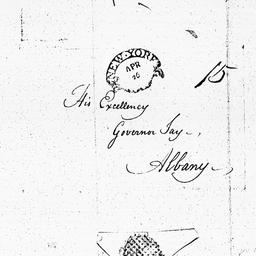 NEW-YORK
APR
20
15
His Excellency
Governor Jay,
Albany